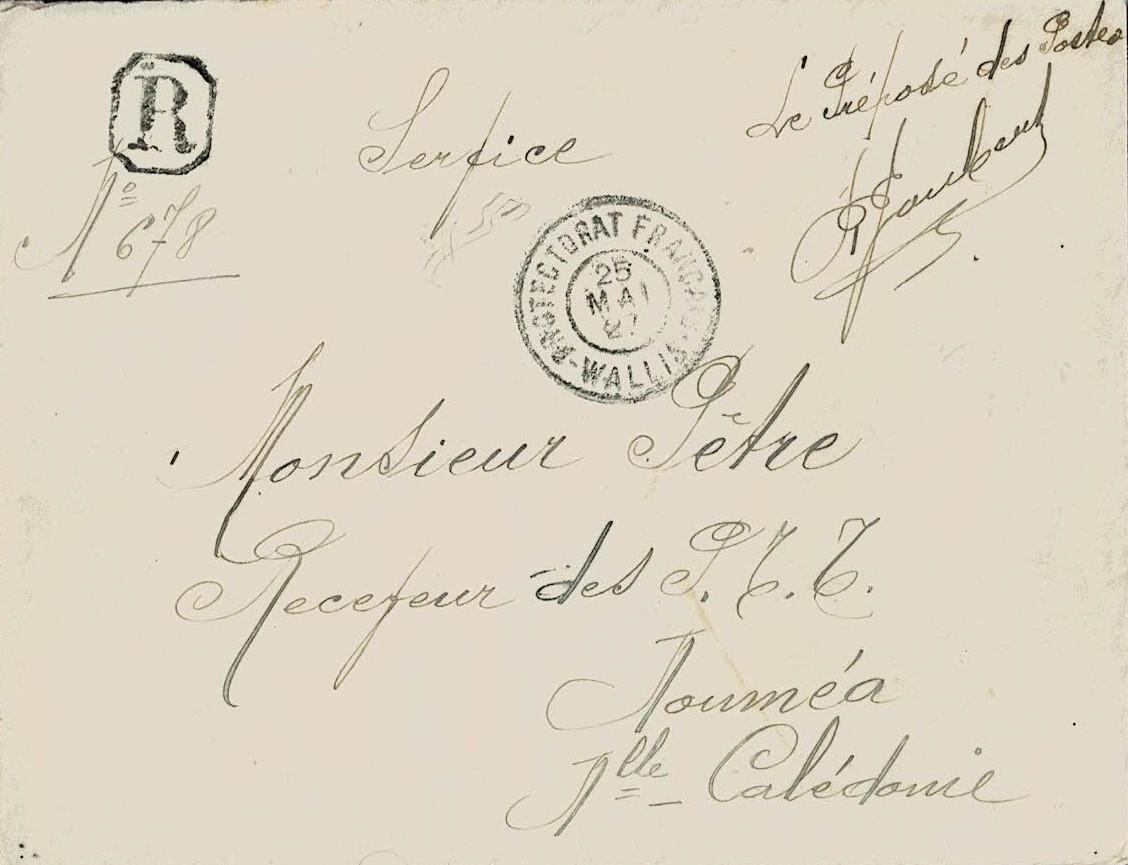 R
Nº 678
Service
Le Préposé des Postes
PROTECTORAT FRANÇAIS
25
MAI
27
-WALLIS-
Monsieur Pêtre
Receveur des P. T. T.
Nouméa
Nlle Calédonie